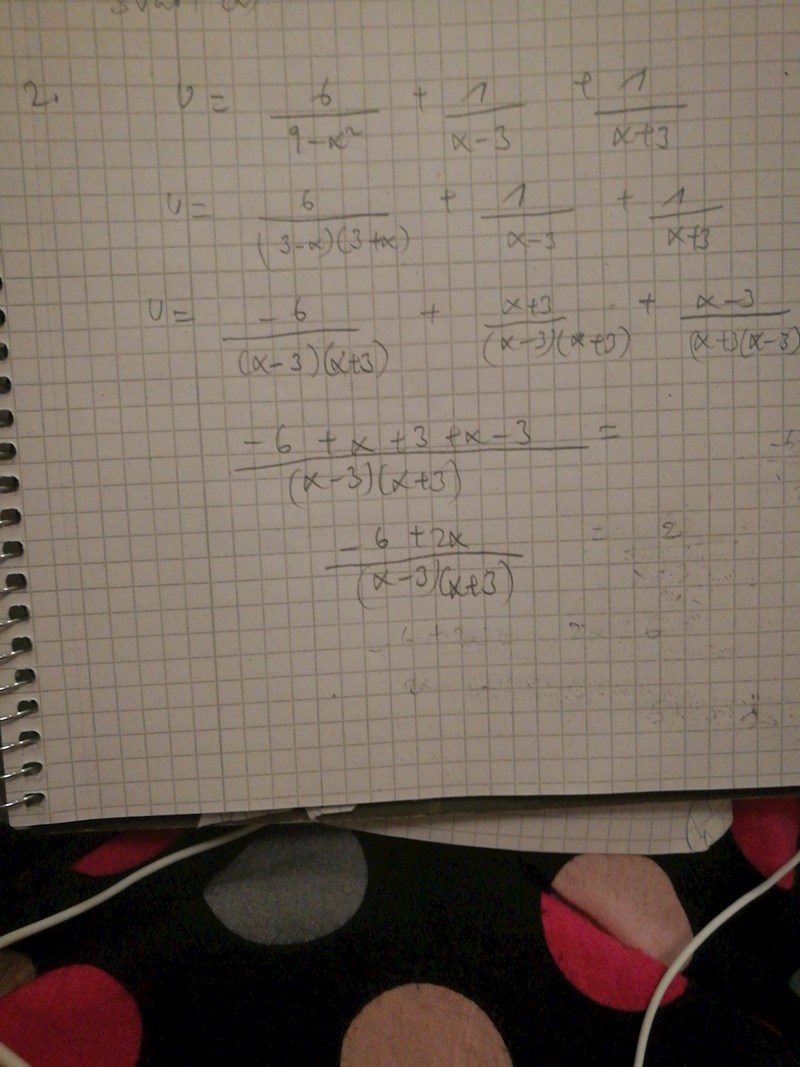 2. V = 6/(9-x²) + 1/(x-3) + 1/(x+3)
V = 6/((3-x)(3+x)) + 1/(x-3) + 1/(x+3)
V = -6/((x-3)(x+3)) + (x+3)/((x-3)(x+3)) + (x-3)/((x+3)(x-3))
(-6 + x + 3 + x - 3)/((x-3)(x+3)) =
(-6 + 2x)/((x-3)(x+3)) = 2